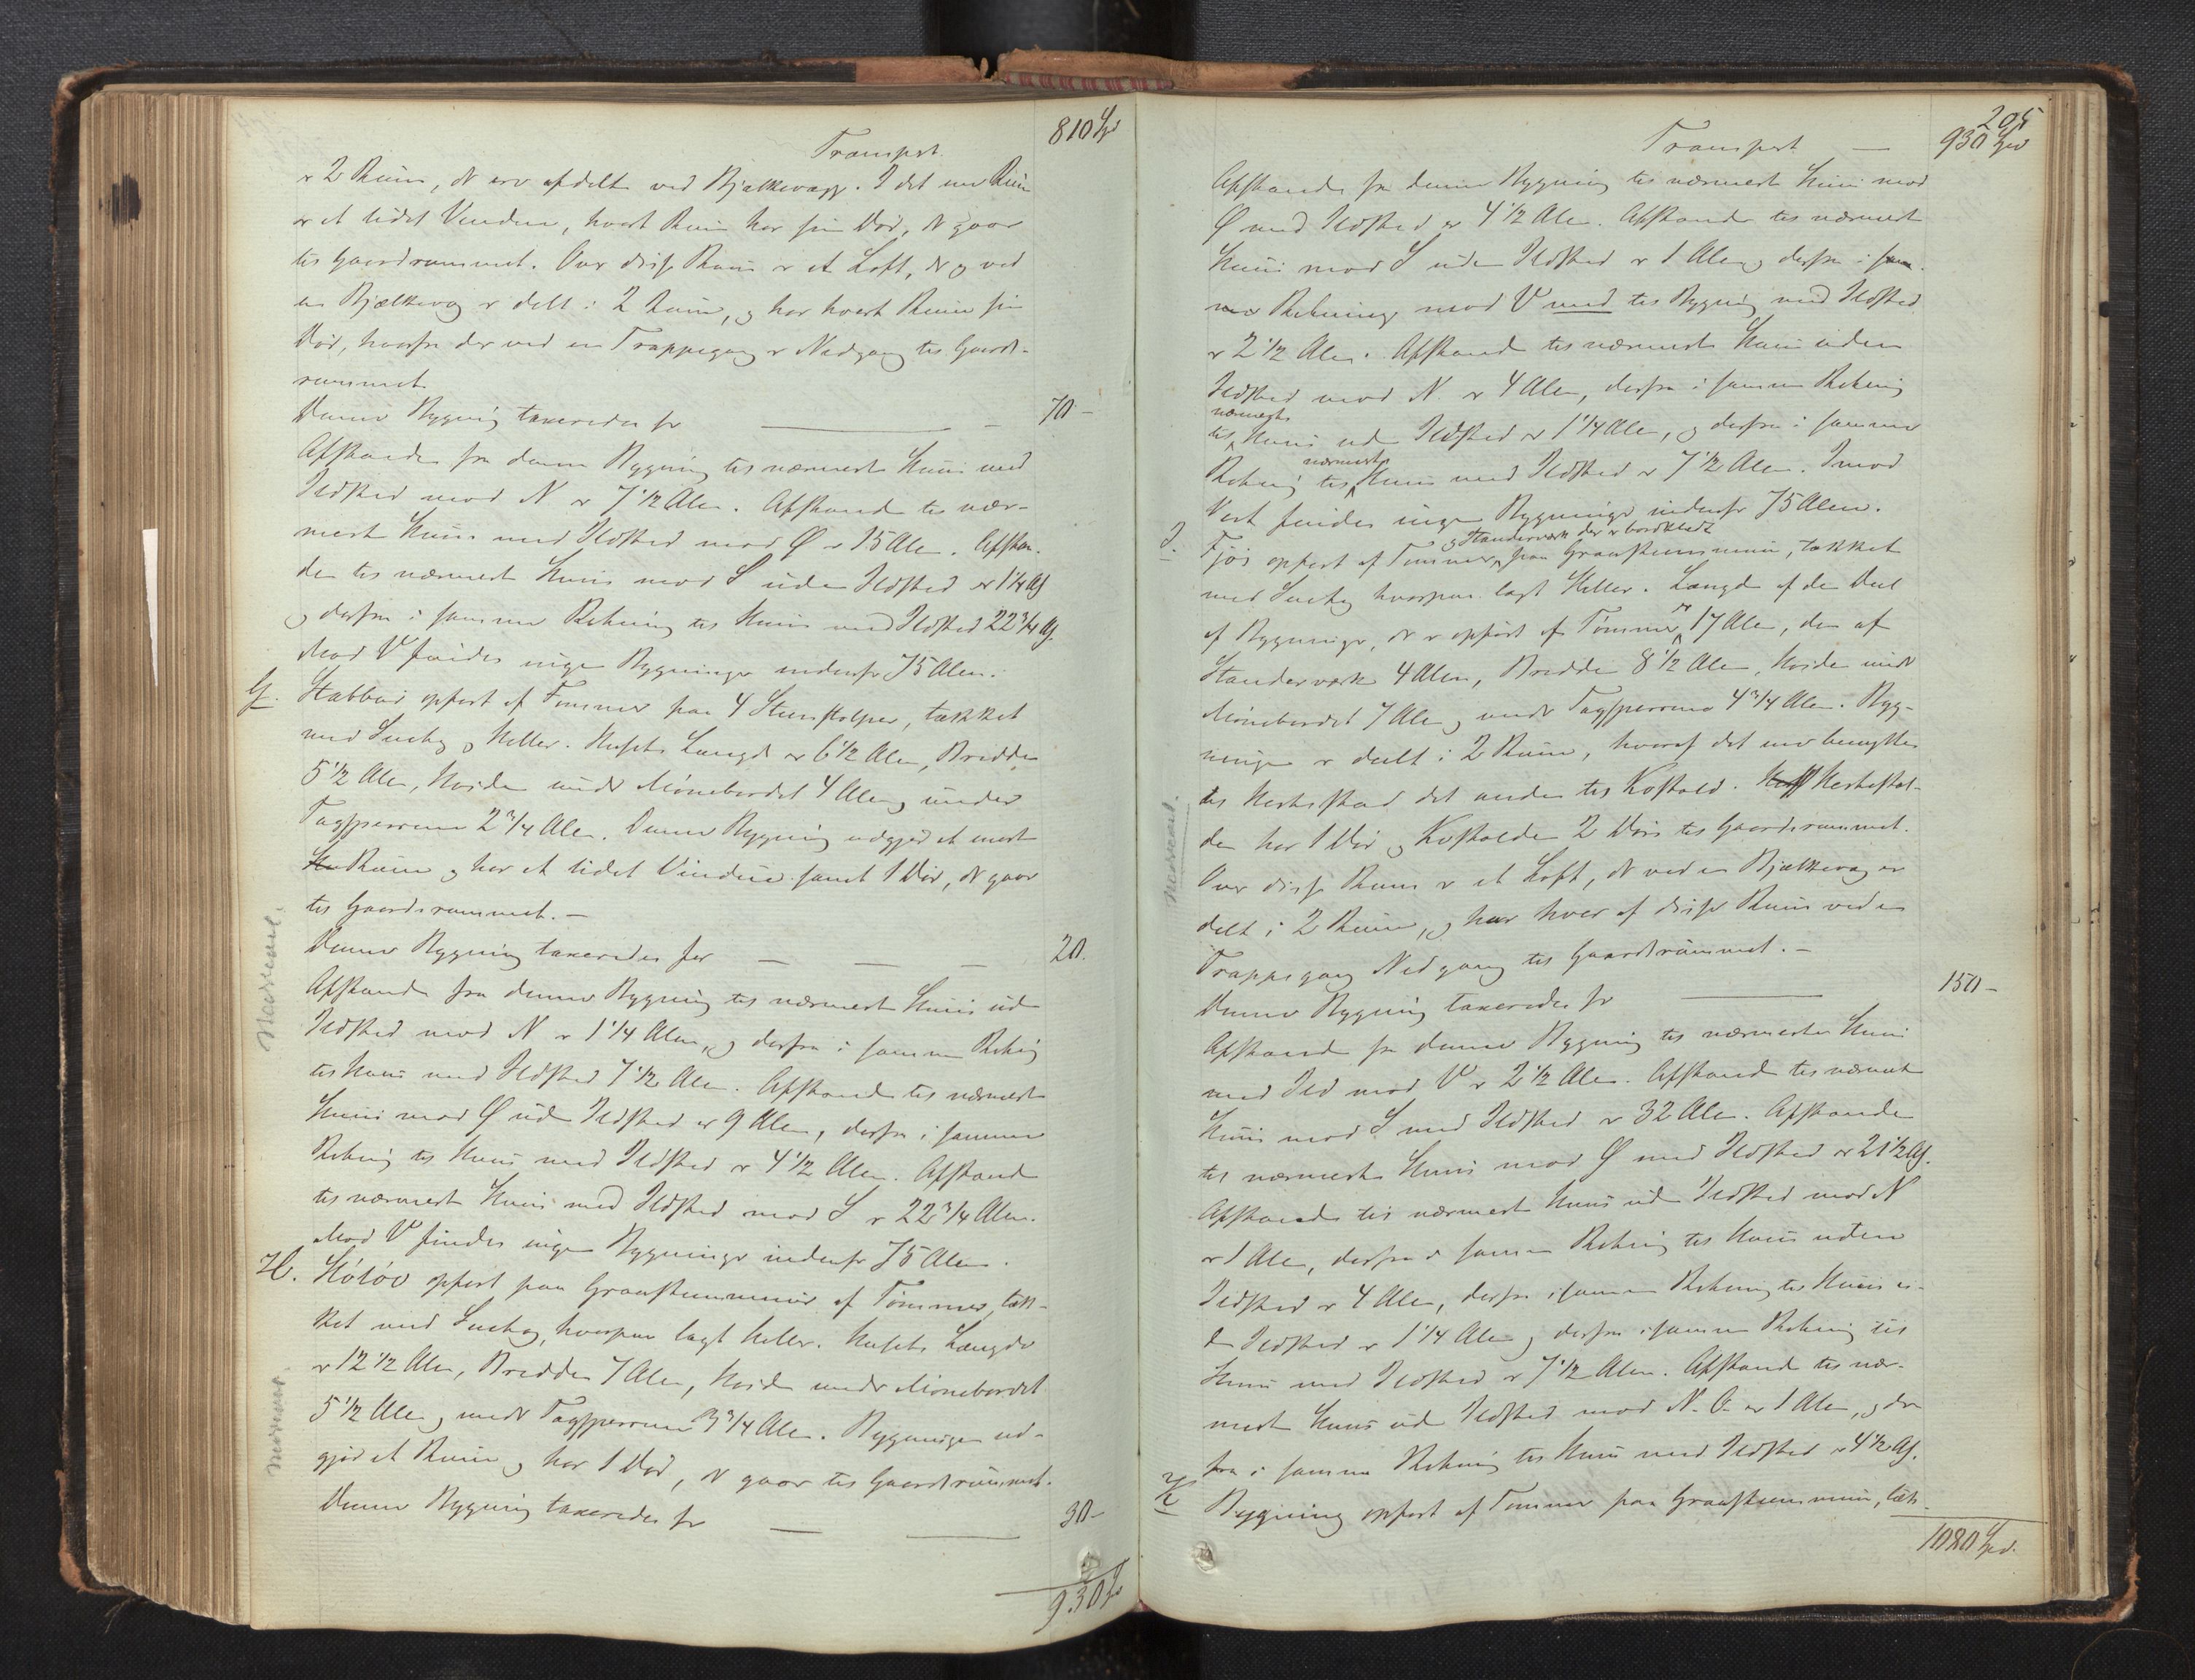 Transport 810 Spd
er 2 Rum, der ere afdelt ved Bjælkevæg. I det ene Rum
er et lidet Vindue, hvert Rum har sin Dør, der gaar
til Gaardsrummet. Over disse Rum er et Loft, der og ved
en Bjælkevæg er delt i 2 Rum, og har hvert Rum sin
Dør, hvorfra der ved en Trappegang er Nedgang til Gaards-
rummet
Denne Bygning taxeredes for — 70 -
Afstanden fra denne Bygning til nærmeste Huus med
Ildsted mod N er 7 1/2 Alen. Afstanden til nær-
meste Huus med Ildsted mod Ø er 15 Alen. Afstan-
den til nærmeste Huus mod S uden Ildsted er 1 1/4 Al
og derfra i samme Retning til Huus med Ildsted 22 3/4 Al.
Mod V findes ingen Bygninger indenfor 75 Alen.
G. Stabbur opført af Tømmer paa 4 Steenstolper, tækket
med Sutag og Heller. Husets Længde er 6 1/2 Alen, Bredden
5 1/2 Alen, Høiden under Mønebordet 4 Alen og under
Tagsperrerne 2 3/4 Alen. Denne Bygning udgjør et enest
Rum og har et lidet Vindue samt 1 Dør, der gaar
til Gaardsrummet. -
Denne Bygning taxeredes for — — — 20.
Afstanden fra denne Bygning til nærmeste Huus uden
Ildsted mod N er 1 1/4 Alen, og derfra i samme Retning
til Huus med Ildsted 7 1/2 Alen. Afstanden til nærmeste
Huus mod Ø uden Ildsted er 9 Alen, derfra i samme
Retning til Huus med Ildsted er 4 1/2 Alen. Afstand
til nærmeste Huus med Ildsted mod S er 22 3/4 Alen.
Mod V findes ingen Bygninger indenfor 75 Alen.
H. Høløe opført paa Graasteensmuur af Tømmer, tæk-
ket med Sutag, hvorpaa lagt Heller. Husets Længde
er 12 1/2 Alen, Bredden 7 Alen, Høiden under Mønebordet
5 1/2 Alen og under Tagsperrerne 3 3/4 Alen. Bygningen ud-
gjør et Rum og har 1 Dør, der gaar til Gaardsrummet.
Denne Bygning taxeredes for — — 30 -
930 Spd
205
Transport — 930 Spd
Afstanden fra denne Bygning til nærmeste Huus mod
Ø med Ildsted er 4 1/2 Alen. Afstanden til nærmeste
Huus mod S uden Ildsted er 1 Alen og derfra i sam-
me Retning mod V med til Bygning med Ildsted
er 2 1/2 Alen. Afstand til nærmeste Huus uden
Ildsted mod N. er 4 Alen, derfra i samme Retning
til nærmeste Huus uden Ildsted er 1 1/4 Alen, og derfra i samme
Retning til nærmeste Huus med Ildsted er 7 1/2 Alen. Imod
Vest findes ingen Bygninger indenfor 75 Alen.
I. Fjøs opført af Tømmer og Standerværk der er bordklædt paa Graasteensmuur, tækket
med Sutag hvorpaa lagt Heller. Længden af den Deel
af Bygningen, der er opført af Tømmer er 17 Alen, den af
Standerværk 4 Alen, Bredden 8 1/2 Alen, Høiden under
Mønebordet 7 Alen og under Tagsperrerne 4 3/4 Alen. Byg-
ningen er deelt i 2 Rum, hvoraf det ene benyttes
til Hestestald det anden til Kostald. Hestestal-
den har 1 Dør og Kostalden 2 Døre til Gaardsrummet.
Over disse Rum er et Loft, der ved en Bjælkevæg er
delt i 2 Rum, og har hver af disse Rum ved en
Trappegang Nedgang til Gaardsrummet. -
Denne Bygning taxeredes for — 150 -
Afstand fra denne Bygning til nærmeste Huus
med Ild mod V er 2 1/2 Alen. Afstand til nærmeste
Huus mod S med Ildsted er 32 Alen. Afstanden
til nærmeste Huus mod Ø med Ildsted er 21 1/2 Al.
Afstanden til nærmeste Huus uden Ildsted mod N
er 1 Alen, derfra i samme Retning til Huus uden
Ildsted er 4 Alen, derfra i samme Retning til Huus u-
den Ildsted er 1 1/4 Alen og derfra i samme Retning til
Huus med Ildsted er 7 1/2 Alen. Afstand til nær-
meste Huus uden Ildsted mod N. O. er 1 Alen, og der-
fra i samme Retning til Huus med Ildsted er 4 1/2 Al.
K Bygning opført af Tømmer paa Graasteensmuur, tæk-
1080 Spd.